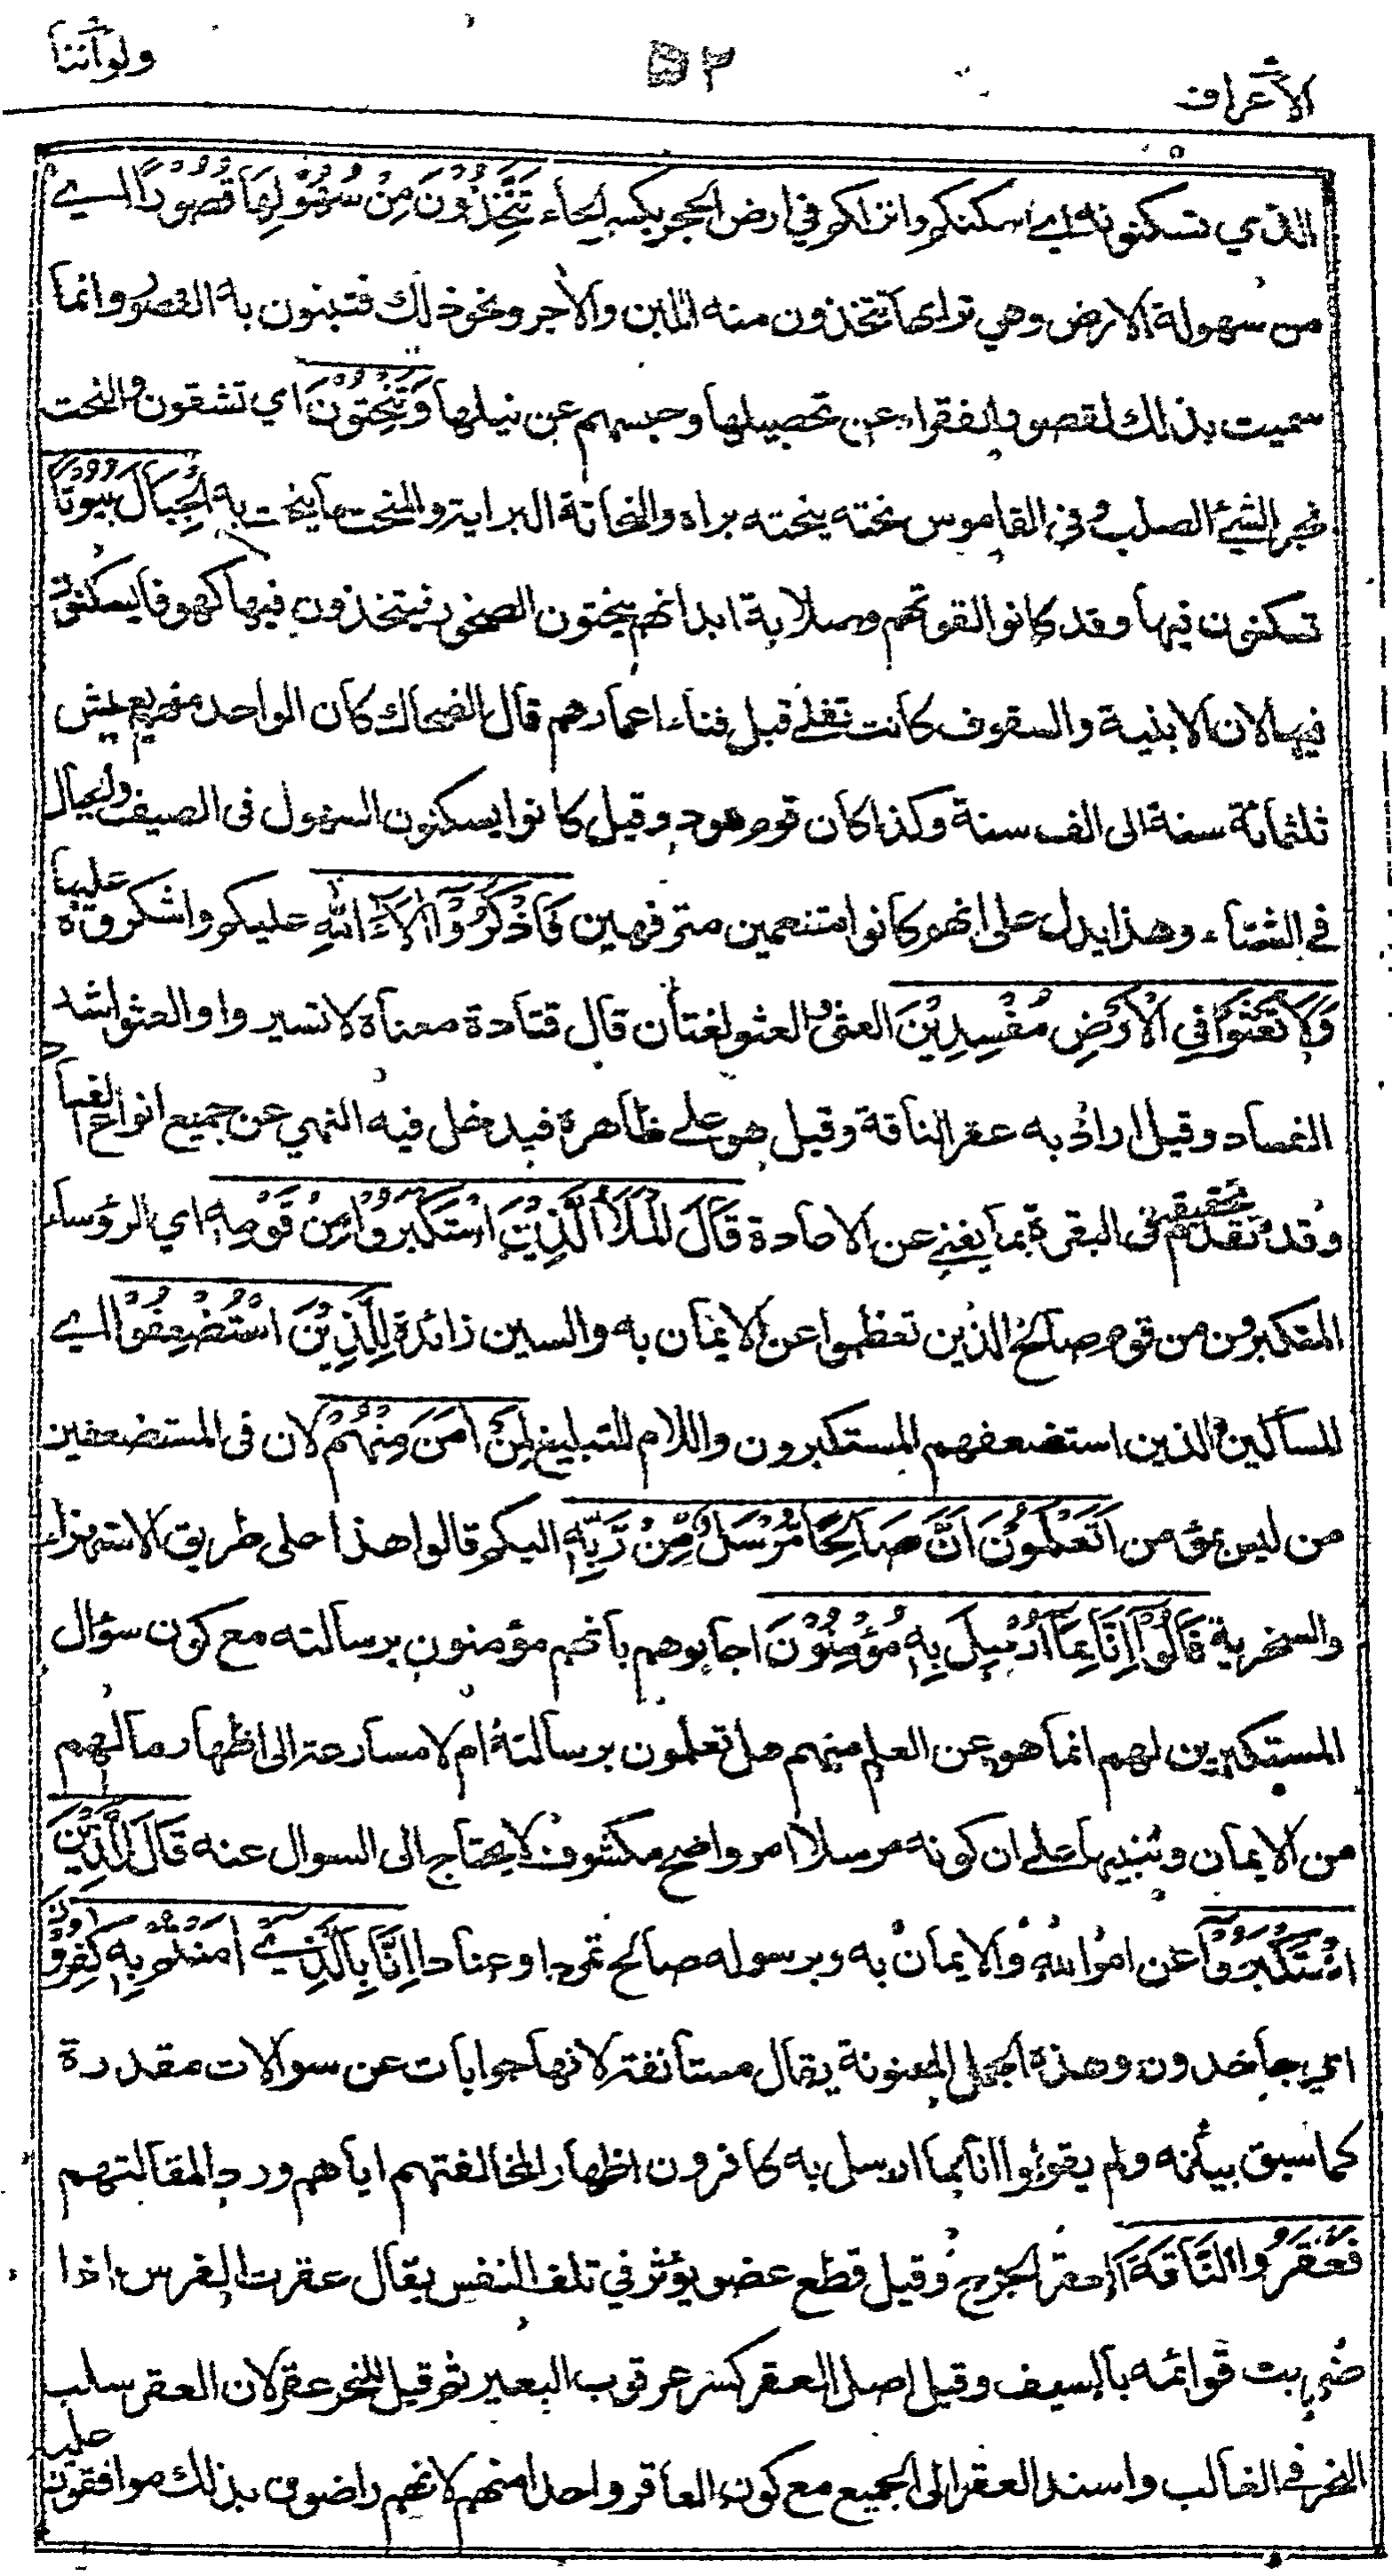 ولواننا
٥٢
الاعراف
الذي تسكنونه اي اسكنكم وانزلكم في ارض الحجر بكسر الحاء تَتَّخِذُوْنَ مِنْ سُهُوْلِهَا قُصُوْرًا اي
من سهولة الارض وهي ترابها تتخذون منه اللبن والأجر ونحو ذلك فتبنون به القصور وانما
سميت بذلك لقصور الفقراء عن تحصيلها وحبسهم عن نيلها وَتَنْحِتُوْنَ اي تشقون والنحت
نجر الشيء الصلب وفي القاموس نحته ينحته براه والنحاتة البراية والمنحت ما ينحت به الْجِبَالَ بُيُوْتًا
تسكنون فيها وقد كانوا لقوتهم وصلابة ابدانهم ينحتون الصخور فيتخذون فيها كهوفا يسكنون
فيها لان الابنية والسقوف كانت تفنى قبل فناء اعمارهم قال الضحاك كان الواحد منهم يعيش
ثلثمائة سنة الى الف سنة وكذا كان قوم هود وقيل كانوا يسكنون السهول في الصيف والجبال
في الشتاء وهذا يدل على انهم كانوا متنعمين مترفهين فَاذْكُرُوْٓا اٰلَآءَ اللّٰهِ عليكم واشكروه عليها
وَلَا تَعْثَوْا فِي الْاَرْضِ مُفْسِدِيْنَ العثي والعثو لغتان قال قتادة معناه لا تسيروا والعثو اشد
الفساد وقيل اراد به عقر الناقة وقيل هو على ظاهره فيدخل فيه النهي عن جميع انواع الفساد
وقد تقدم تحقيقه في البقرة بما يغني عن الاعادة قَالَ الْمَلَاُ الَّذِيْنَ اسْتَكْبَرُوْا مِنْ قَوْمِهٖ اي الرؤساء
المتكبرون من قوم صالح الذين تعظموا عن الايمان به والسين زائدة لِلَّذِيْنَ اسْتُضْعِفُوْا اي
المساكين الذين استضعفهم المستكبرون واللام للتبليغ لِمَنْ اٰمَنَ مِنْهُمْ لان في المستضعفين
من ليس بمؤمن اَتَعْلَمُوْنَ اَنَّ صَالِحًا مُّرْسَلٌ مِّنْ رَّبِّهٖ اليكم قالوا هذا على طريق الاستهزاء
والسخرية قَالُوْٓا اِنَّا بِمَآ اُرْسِلَ بِهٖ مُؤْمِنُوْنَ اجابوهم بانهم مؤمنون برسالته مع كون سؤال
المستكبرين لهم انما هو عن العلم منهم هل تعلمون برسالته ام لا مسارعة الى اظهار ما لهم
من الايمان وتنبيها على ان كونه مرسلا امر واضح مكشوف لا يحتاج الى السوال عنه قَالَ الَّذِيْنَ
اسْتَكْبَرُوْٓا عن امر الله والايمان به وبرسوله صالح تمردا وعنادا اِنَّا بِالَّذِيْٓ اٰمَنْتُمْ بِهٖ كٰفِرُوْنَ
اي جاحدون وهذه الجمل المعنونة يقال مستانفة لانها جوابات عن سوالات مقدرة
كما سبق بيانه ولم يقولوا انا بما ارسل به كافرون اظهارا لمخالفتهم اياهم وردا لمقالتهم
فَعَقَرُوا النَّاقَةَ العقر الجرح وقيل قطع عضو يؤثر في تلف النفس يقال عقرت الفرس اذا
ضربت قوائمه بالسيف وقيل اصل العقر كسر عرقوب البعير ثم قيل للنحر عقر لان العقر سلب
النحر في الغالب واسند العقر الى الجميع مع كون العاقر واحدا منهم لانهم راضون بذلك موافقون عليه